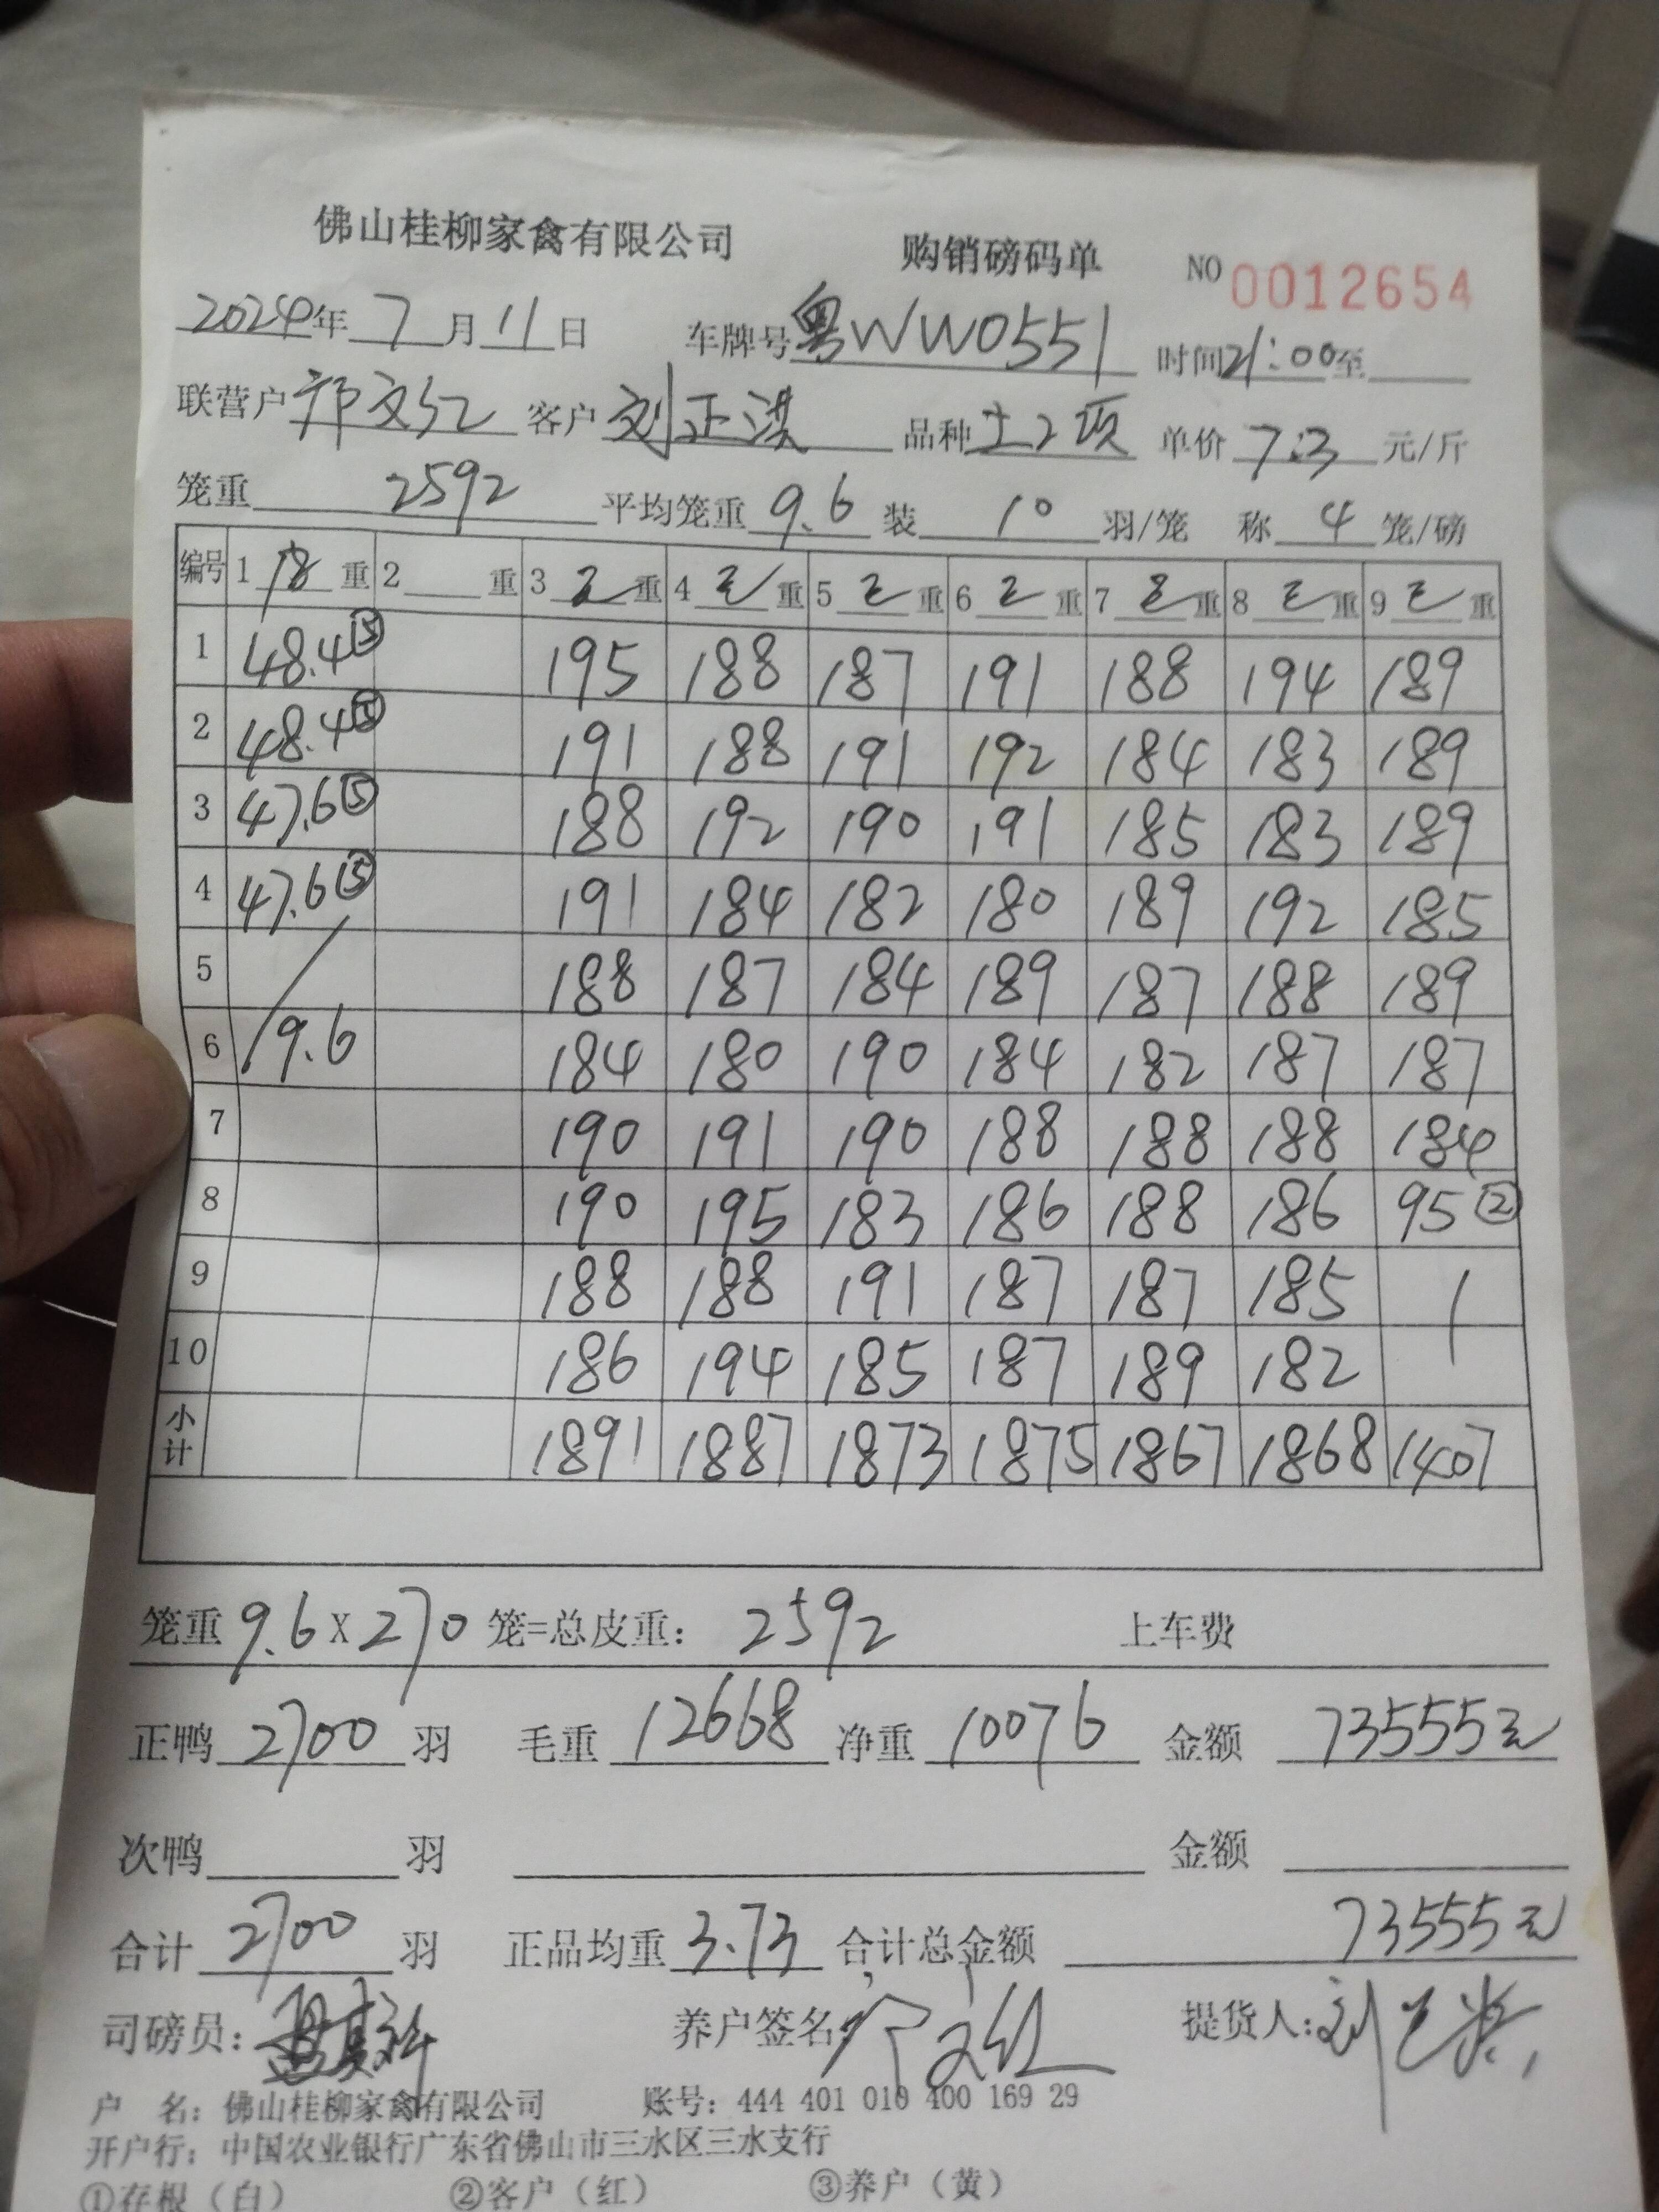 佛山桂柳家禽有限公司 购销磅码单 NO 0012654
2024年 7月 11日 车牌号 粤WW0551 时间 21:00 至
联营户 邓文红 客户 刘正洪 品种 土2项 单价 7.3 元/斤
笼重 2592 平均笼重 9.6 装 10 羽/笼 称 4 笼/磅
编号 1 皮 重 2 重 3 毛 重 4 毛 重 5 毛 重 6 毛 重 7 毛 重 8 毛 重 9 毛 重
1 48.4⑤ 195 188 187 191 188 194 189
2 48.4⑤ 191 188 191 192 184 183 189
3 47.6⑤ 188 192 190 191 185 183 189
4 47.6⑤ 191 184 182 180 189 192 185
5 188 187 184 189 187 188 189
6 9.6 184 180 190 184 182 187 187
7 190 191 190 188 188 188 184
8 190 195 183 186 188 186 95②
9 188 188 191 187 187 185
10 186 194 185 187 189 182
小计 1891 1887 1873 1875 1867 1868 1407
笼重 9.6 X 270 笼=总皮重: 2592 上车费
正鸭 2700 羽 毛重 12668 净重 10076 金额 73555元
次鸭 羽 金额
合计 2700 羽 正品均重 3.73 合计总金额 73555元
司磅员: 养户签名: 文红 提货人: 刘
户 名: 佛山桂柳家禽有限公司 账号: 444 401 010 400 169 29
开户行: 中国农业银行广东省佛山市三水区三水支行
①存根（白） ②客户（红） ③养户（黄）